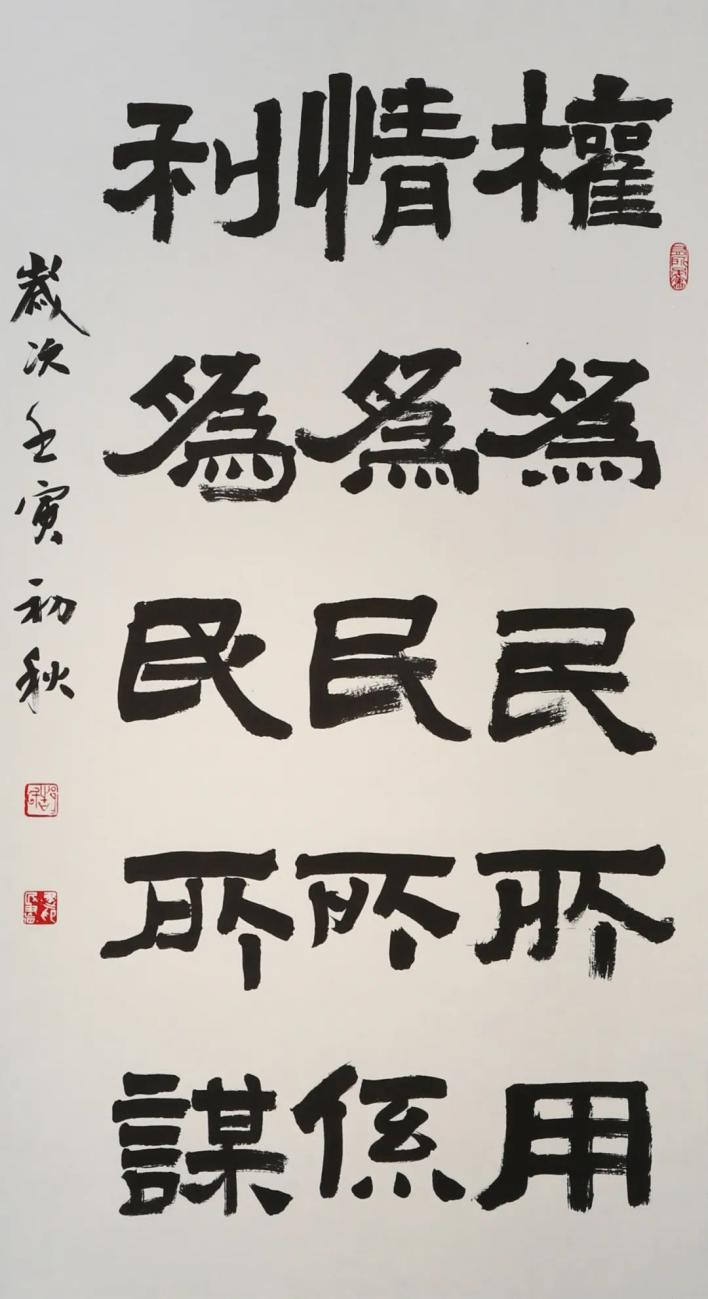 權為民所用
情為民所係
利為民所謀
歲次壬寅初秋